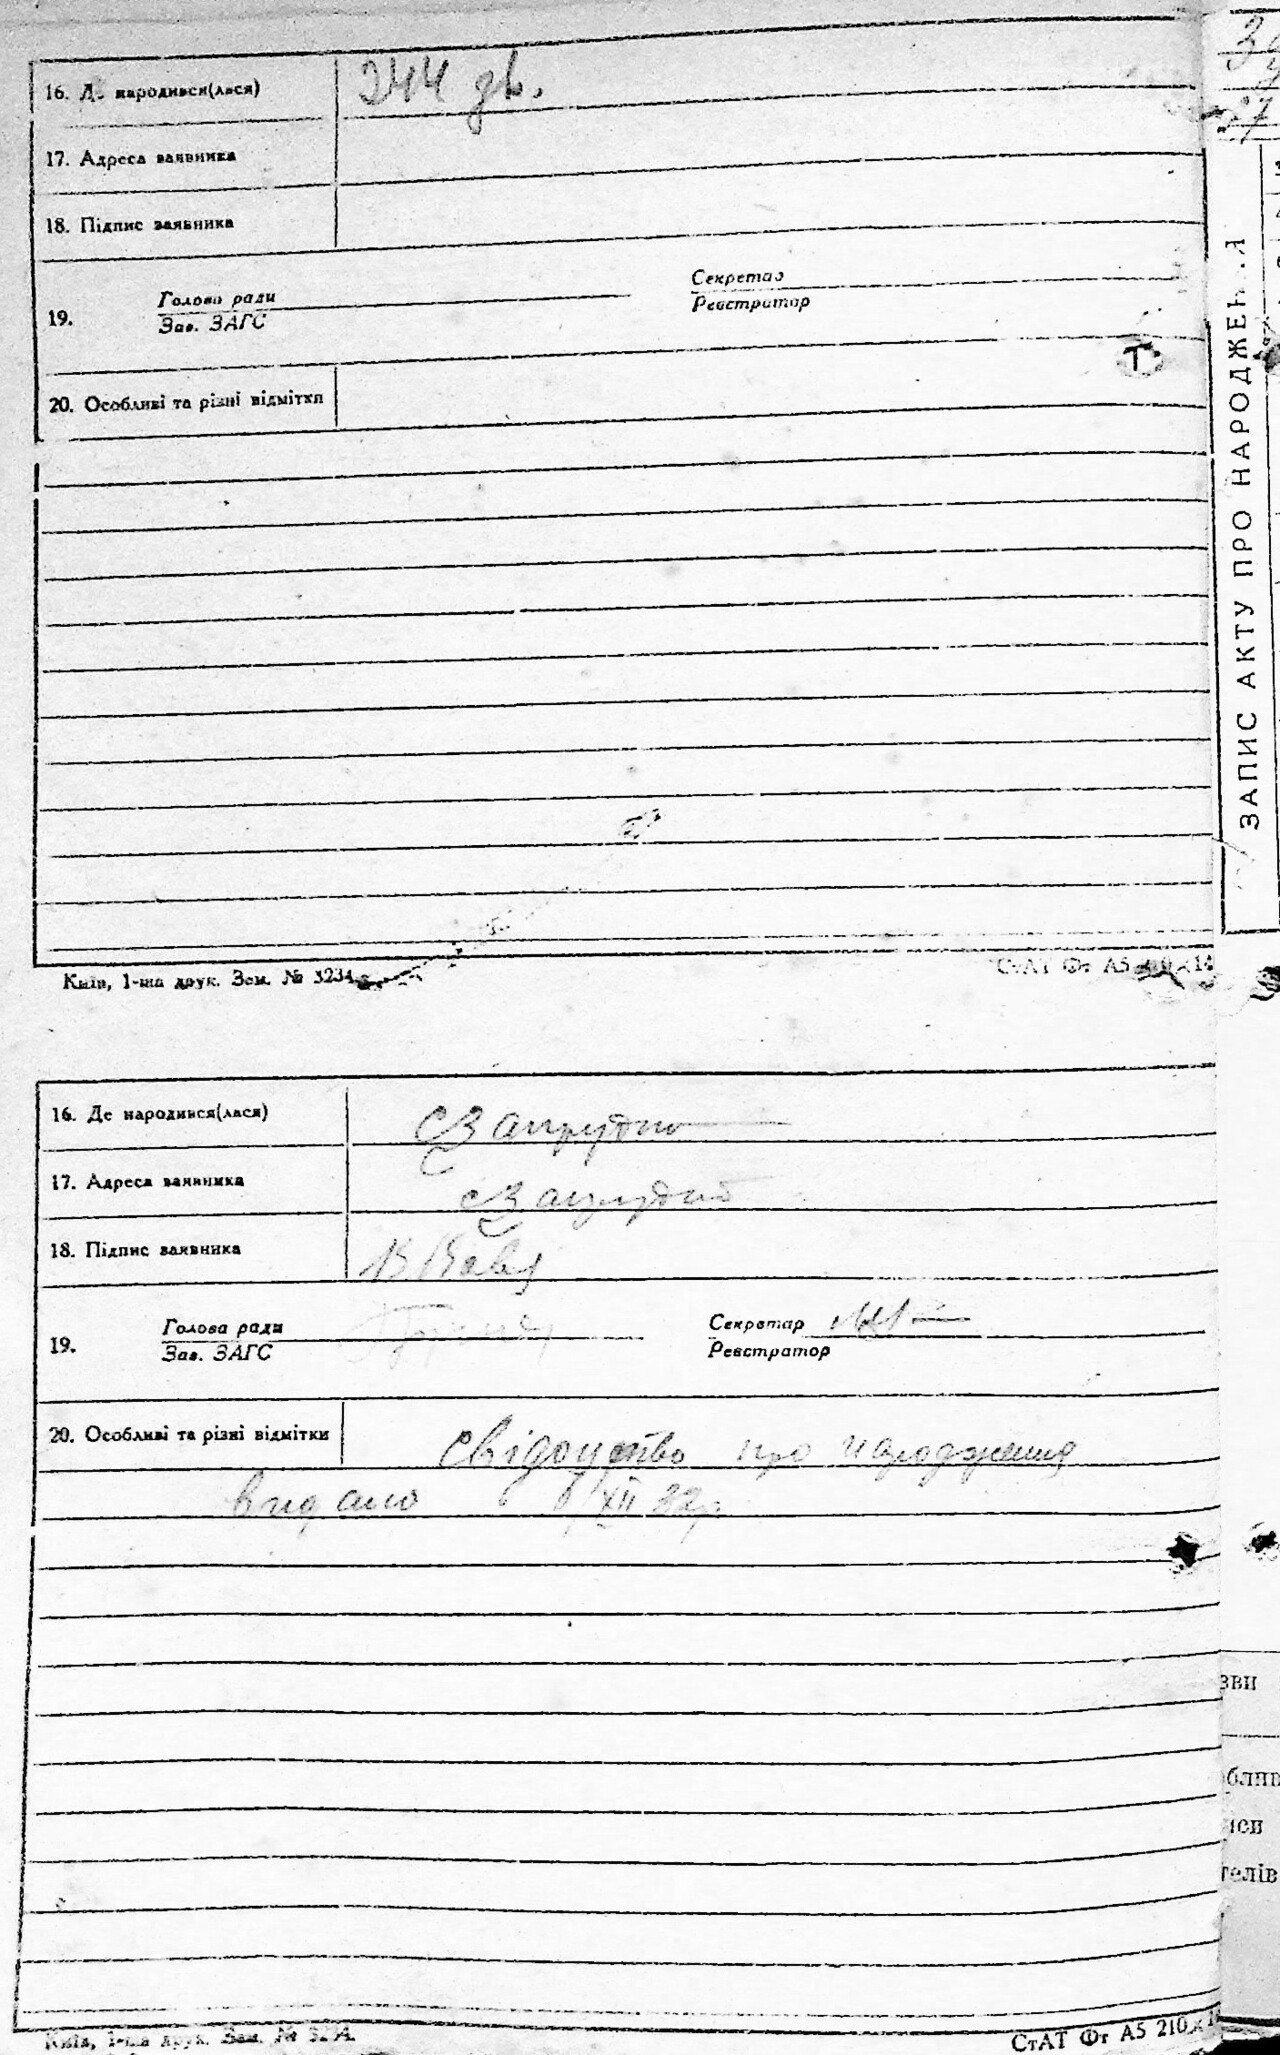 16. Де народився(лася) 244 зв.
17. Адреса заявника
18. Підпис заявника
19. Голова ради Секретар
Зав. ЗАГС Реєстратор
20. Особливі та різні відмітки
Київ, 1-ша друк. Зам. № 3234
СтАТ Фт А5 210×14
ЗАПИС АКТУ ПРО НАРОДЖЕННЯ
16. Де народився(лася) с Запрудно
17. Адреса заявника с Запрудно
18. Підпис заявника
19. Голова ради Секретар
Зав. ЗАГС Реєстратор
20. Особливі та різні відмітки свідоцтво про народження
видано XII
Київ, 1-ша друк. Зам. № 3234.
СтАТ Фт А5 210×1
зви
блив
иси
телів